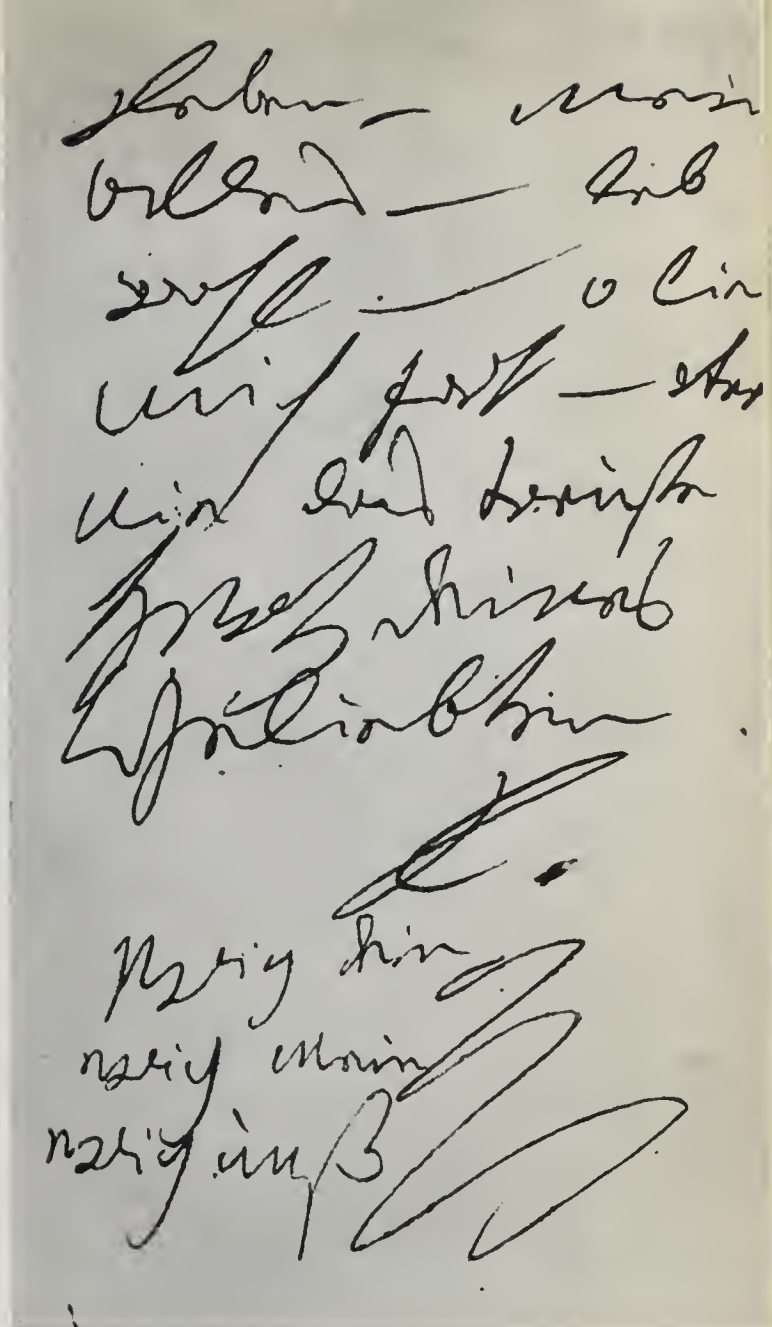 Leben – mein
alles – leb
wohl – o lie
mich fort – ver
nie das treuste
Herz deines
Geliebten
L.
ewig dein
ewig mein
ewig unß